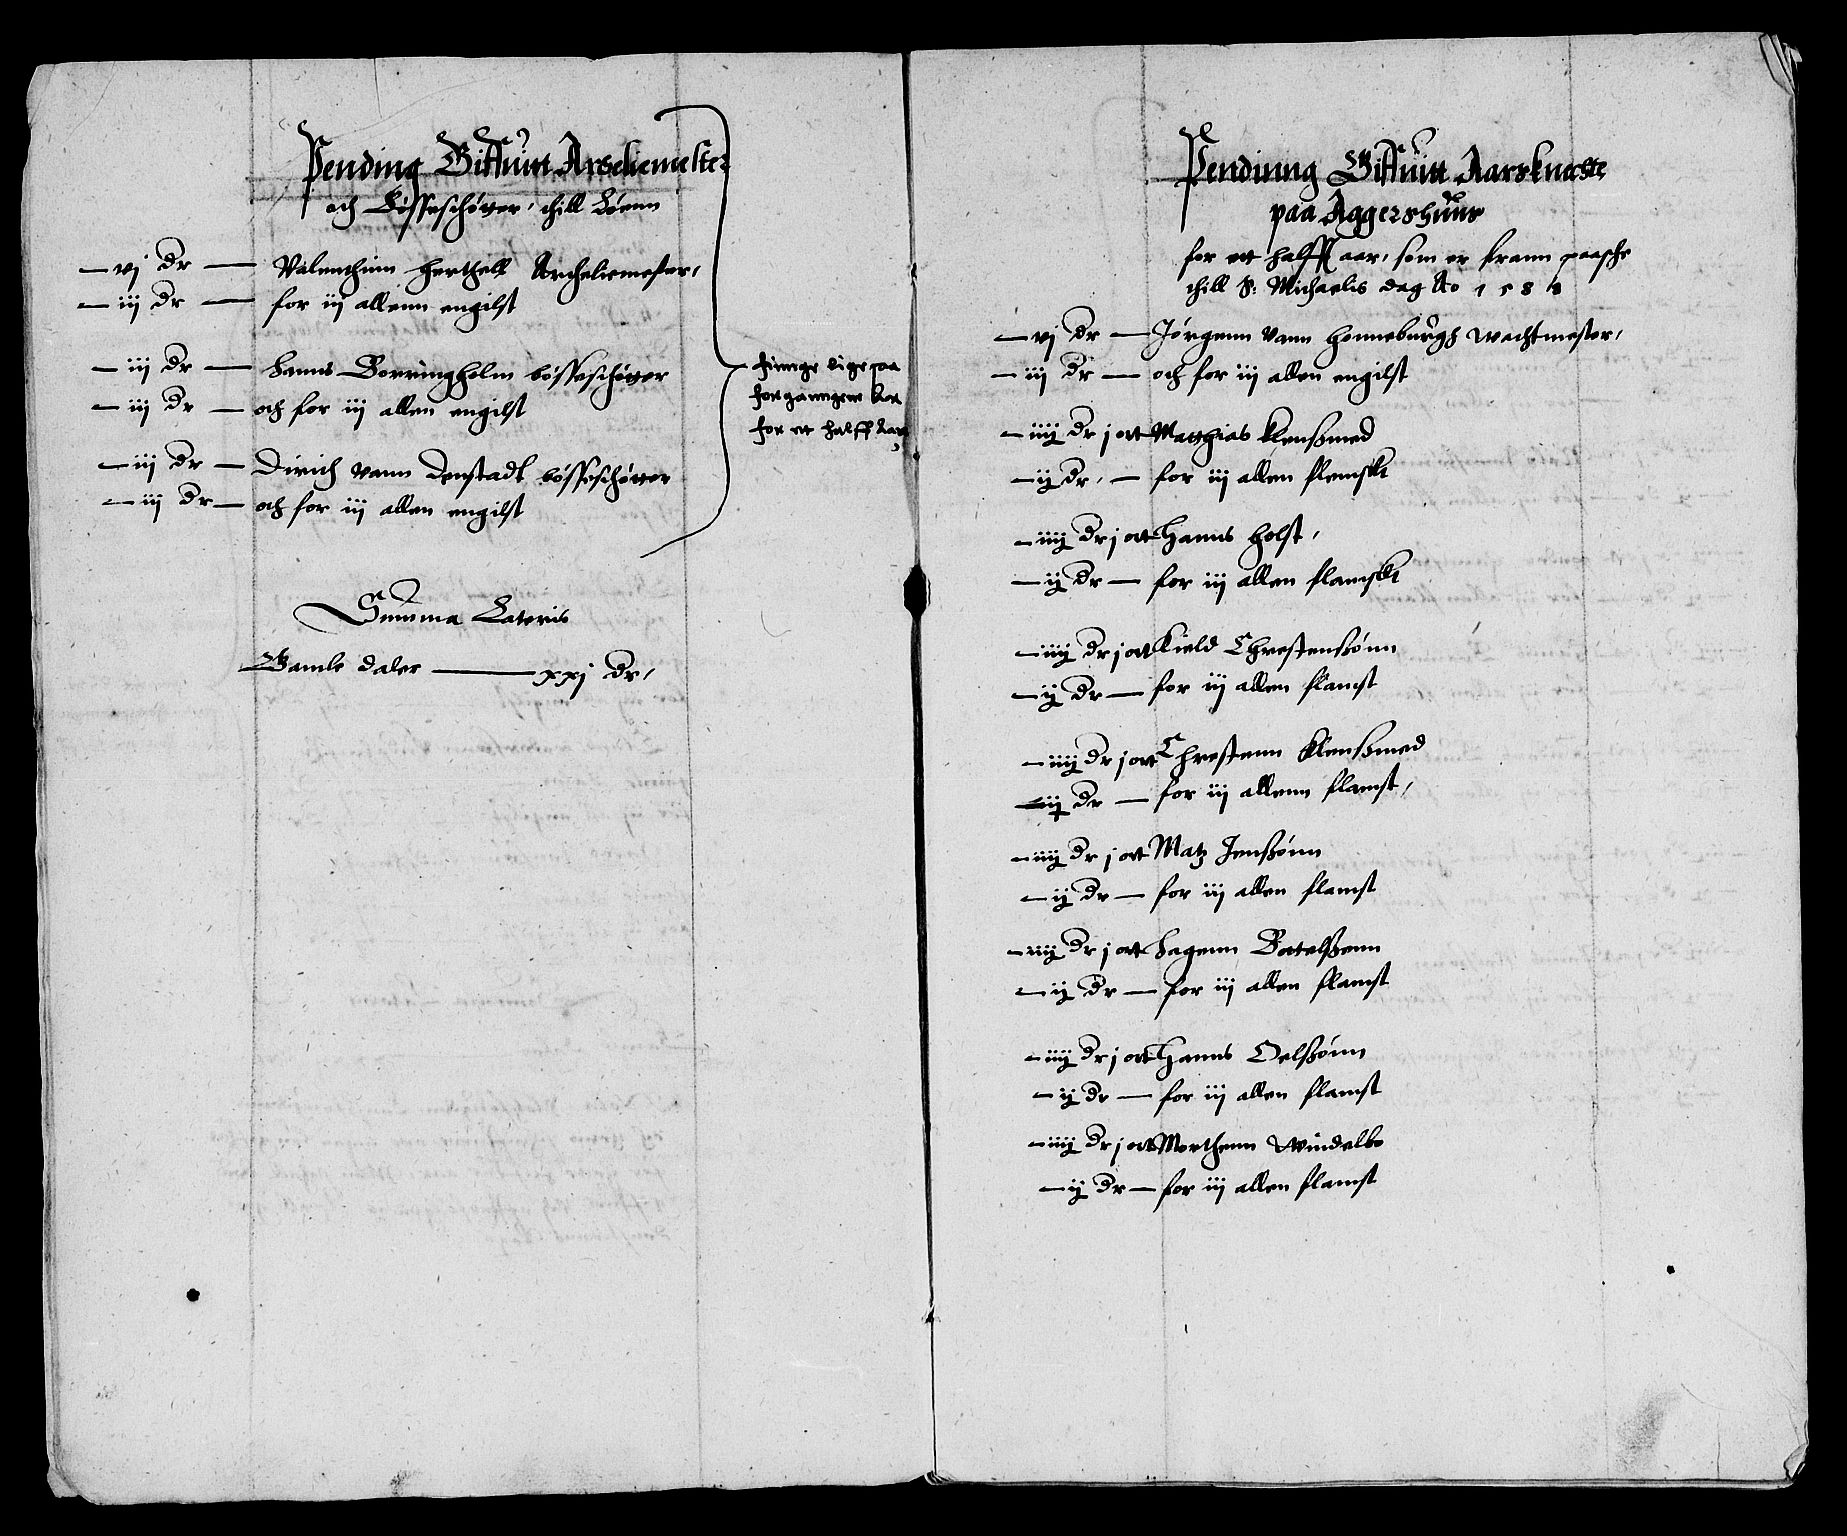 Pending Giffuitt Arseliemester
och Bøsseschøtter, thill Løenn
vj dr Valenthinn Herthell Archeliemester,
iij dr for iij allenn engilst
iij dr Hanns Borringholm bøsseschøtter
iij dr och for iij allen engilst
iij dr Dirich vann Denstadt bøsseschøtter
iij dr och for iij allen engilst
finnge lige paa
forganngene Aar
for et halff Aar
Summa Lateris
Gamle daler xxj dr,
Pendinng Giffuitt Aarsknecte
paa Aggershuus
for ett halfft aar, som er frann paasche
thill S: Michaelis dag Ao 1588
vj dr Jørgenn vann Honneburgh wachtmester,
iij dr och for iij allen engilst
iiij dr j ort Matthias Klensmed
ij dr, for iij allen flemskt
iiij dr j ort Hanns Holst,
ij dr for iij allen flamskt
iiij dr j ort Kield Chrestenssønn
ij dr for iij allen flamst
iiij dr j ort Chrestenn Klensmed
ij dr for iij allenn flamst,
iiij dr j ort Matz Jenssønn
ij dr for iij allen flamst
iiij dr j ort Hagenn Botelssenn
ij dr for iij allen flamst
iiij dr j ort Hanns Oelssønn
ij dr for iij allen flamst
iiij dr j ort Morthenn Windelbo
ij dr for iij allen flamst